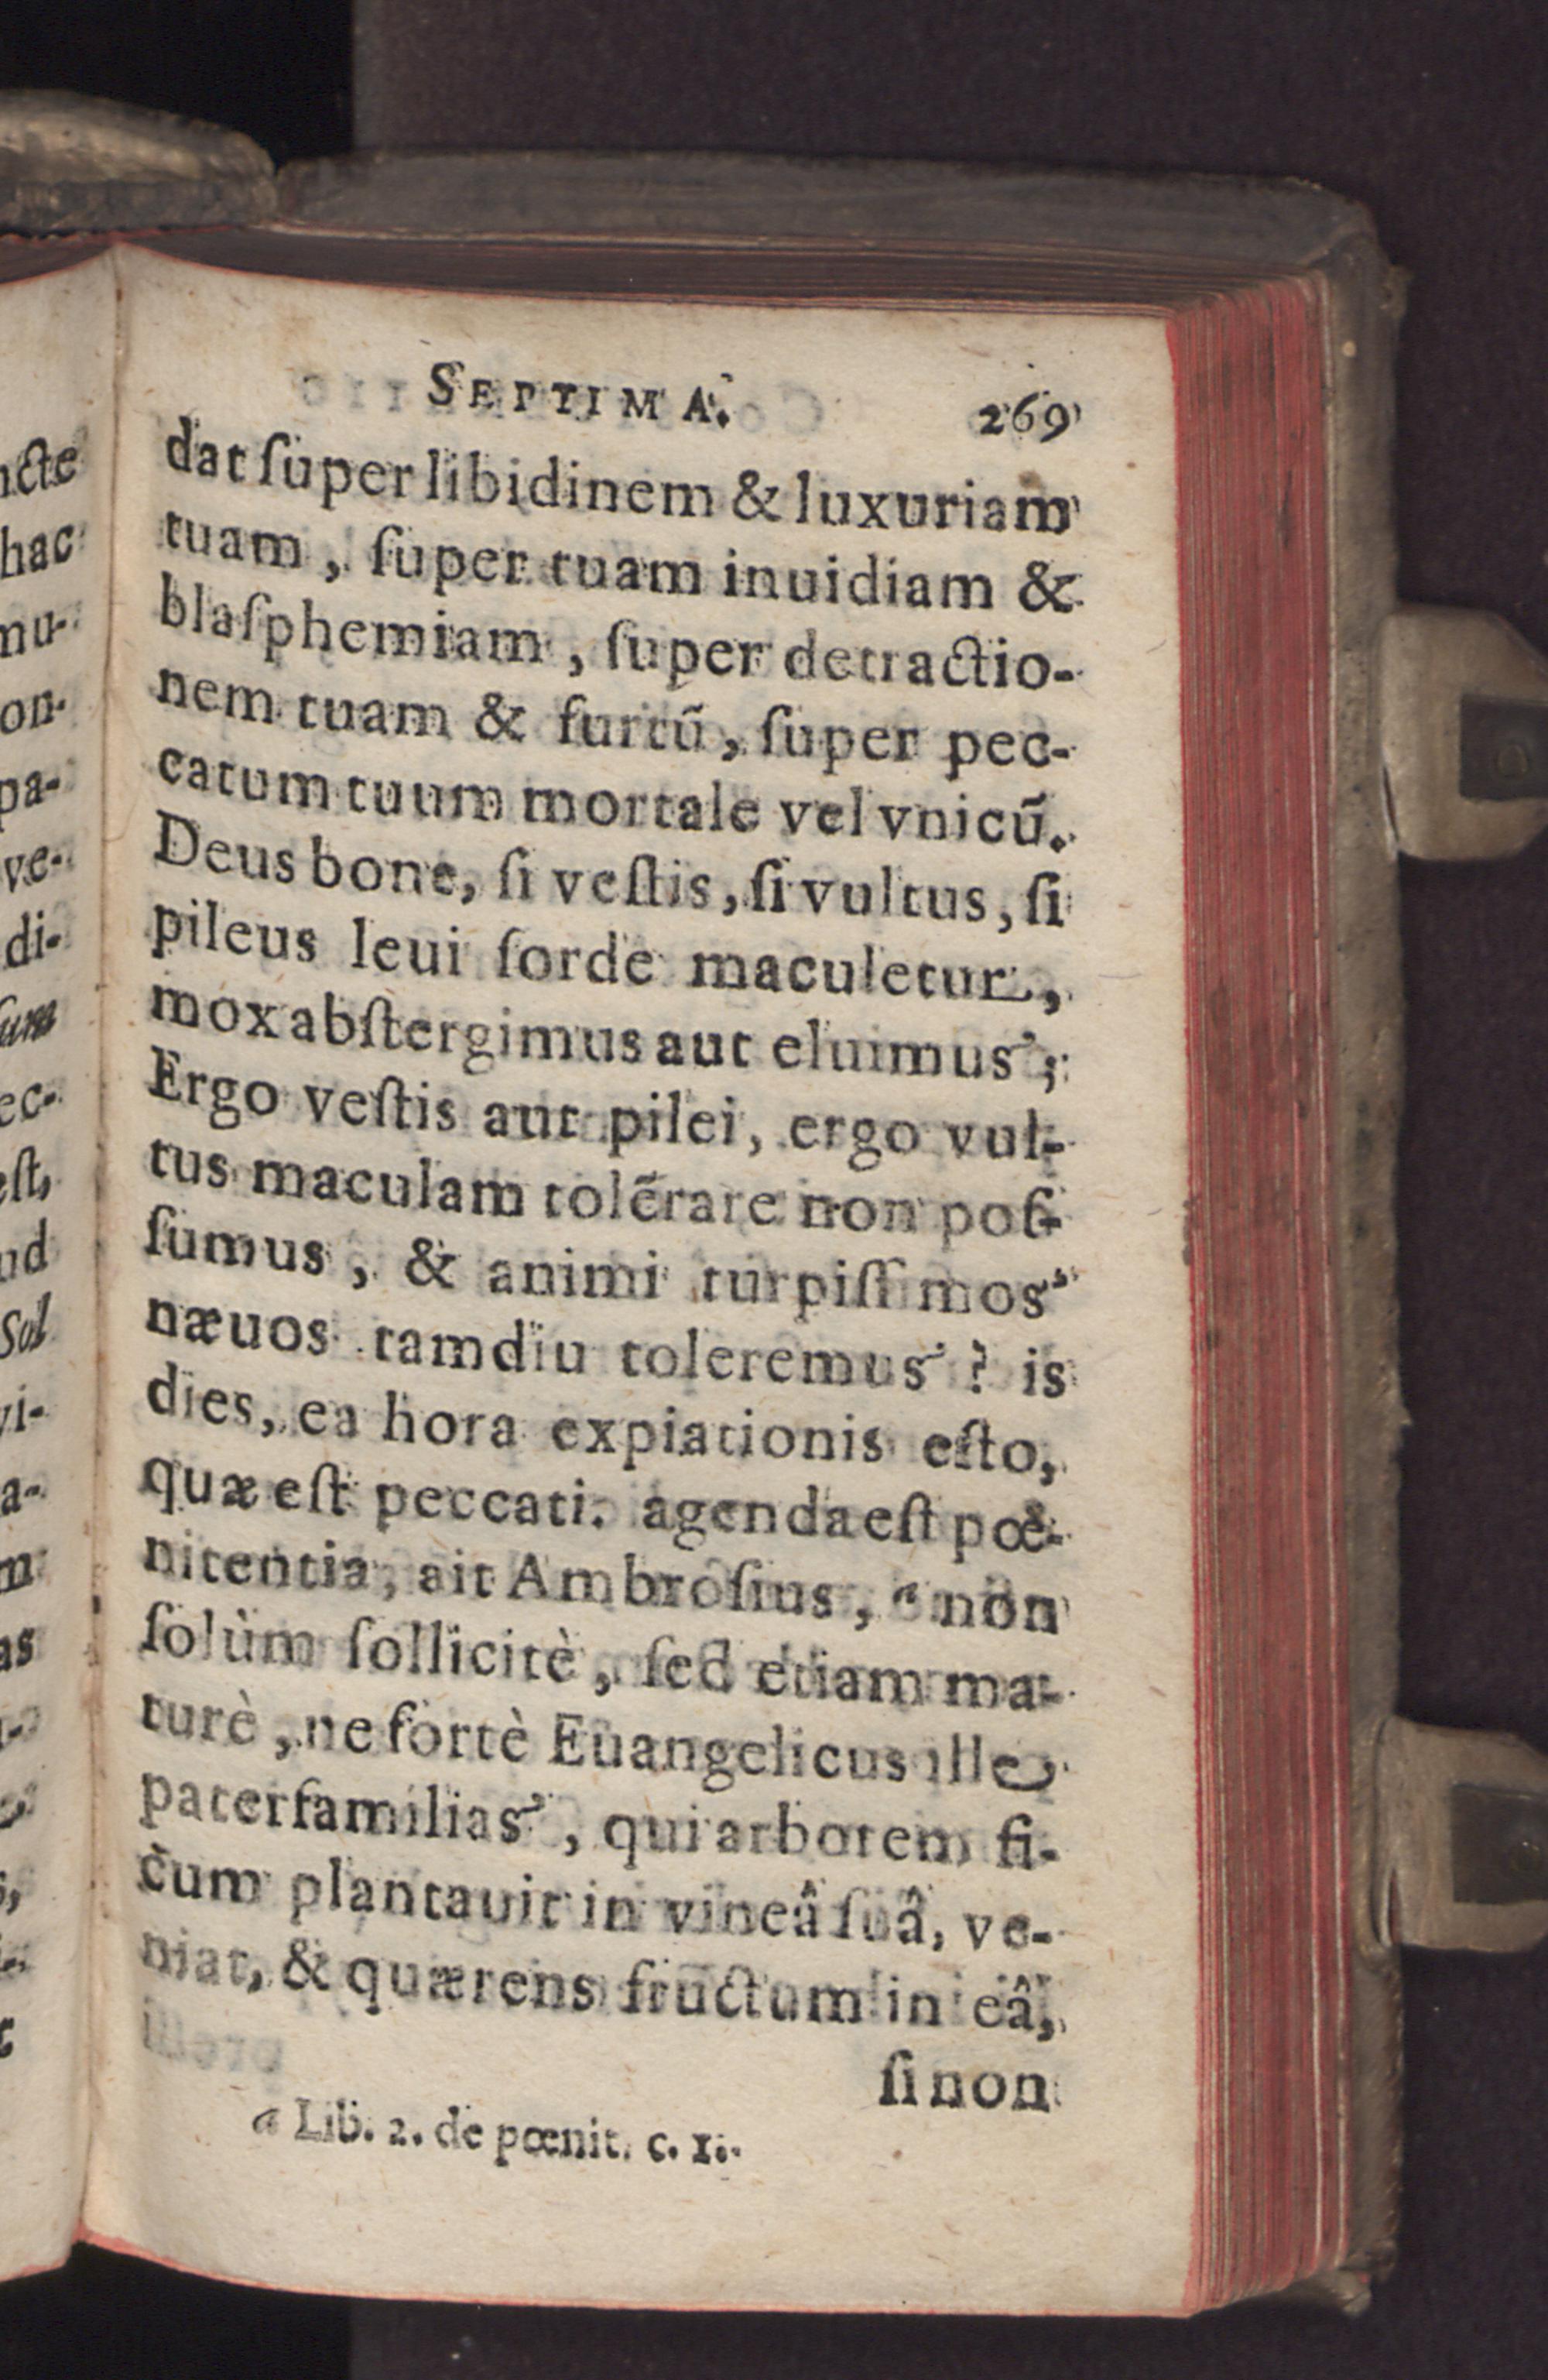 SEPTIMA. 269
dat ſuper libidinem & luxuriam
tuam, ſuper tuam inuidiam &
blaſphemiam, ſuper detractio-
nem tuam & furtū, ſuper pec-
catum tuum mortale vel vnicū.
Deus bone, ſi veſtis, ſi vultus, ſi
pileus leui ſorde maculetur,
mox abſtergimus aut eluimus;
Ergo veſtis aut pilei, ergo vul-
tus maculam tolērare non poſ-
ſumus, & animi turpiſſimos
næuos tamdiu toleremus? is
dies, ea hora expiationis eſto,
quæ eſt peccati. agenda eſt pœ-
nitentia, ait Ambroſius, a non
ſolùm ſollicitè, ſed etiam ma-
turè, ne fortè Euangelicus ille
paterfamilias, qui arborem fi-
cum plantauit in vineâ ſuâ, ve-
niat, & quærens fructum in eâ,
ſi non
a Lib. 2. de pœnit. c. 1.
ncte
hac
mu-
on-
pa-
ve-
di-
ſum
ec-
eſt,
ud
Sol
vi-
a-
m
as